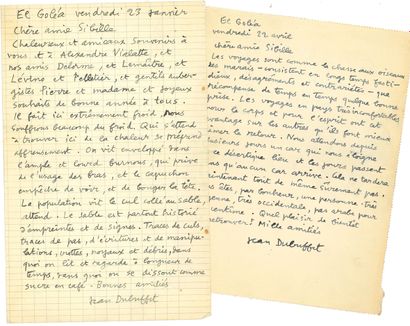 El Goléa vendredi 23 janvier
Chère amie Sibilla
Chaleureux et amicaux souvenirs à
vous et à Alexandre Vialatte, et
nos amis Delorme, et Lemaître, et
et Pelletier, et gentils auber-
gistes Pierre et madame et joyeux
souhaits de bonne année à tous.
Il fait ici extrêmement froid, nous
souffrons beaucoup du froid. Qui s'attend
trouver ici de la chaleur se méprend
On vit enveloppé dans
l'ample et lourd burnous, qui prive
de l'usage des bras, et le capuchon
empêche de voir, et de bouger la tête.
La population vit le cul collé au sable,
attend. Le sable est partout historié
d'empreintes et de signes. Traces de culs,
traces de pas, d'écritures et de manipu-
lations, crottes, noyaux et débris, dans
quoi on lit et regarde à longueur de
temps, dans quoi on se dissout comme
sucre en café. Bonnes amitiés
Jean Dubuffet
El Goléa
vendredi 22 avril
chère amie Sibilla
Les voyages sont comme la chasse aux oiseaux
des marais - consistent en longs temps fasti-
dieux, désagréments et contrariétés - pas
récompense de temps en temps quelque bonne
prise. Les voyages en pays très inconfortables
pour le corps et pour l'esprit ont cet
avantage sur les autres qu'ils font mieux
aimer le retour. Nous attendons depuis
plusieurs jours un car qui nous éloigne
ce désertique lieu et les jours passent
sans qu'aucun car arrive. Cela ne tardera
maintenant tout de même sûrement pas.
êtes, par bonheur, une personne très
, très occidentale, pas arabe pour
centime. Quel plaisir de bientôt
retrouver! Mille amitiés
Jean Dubuffet